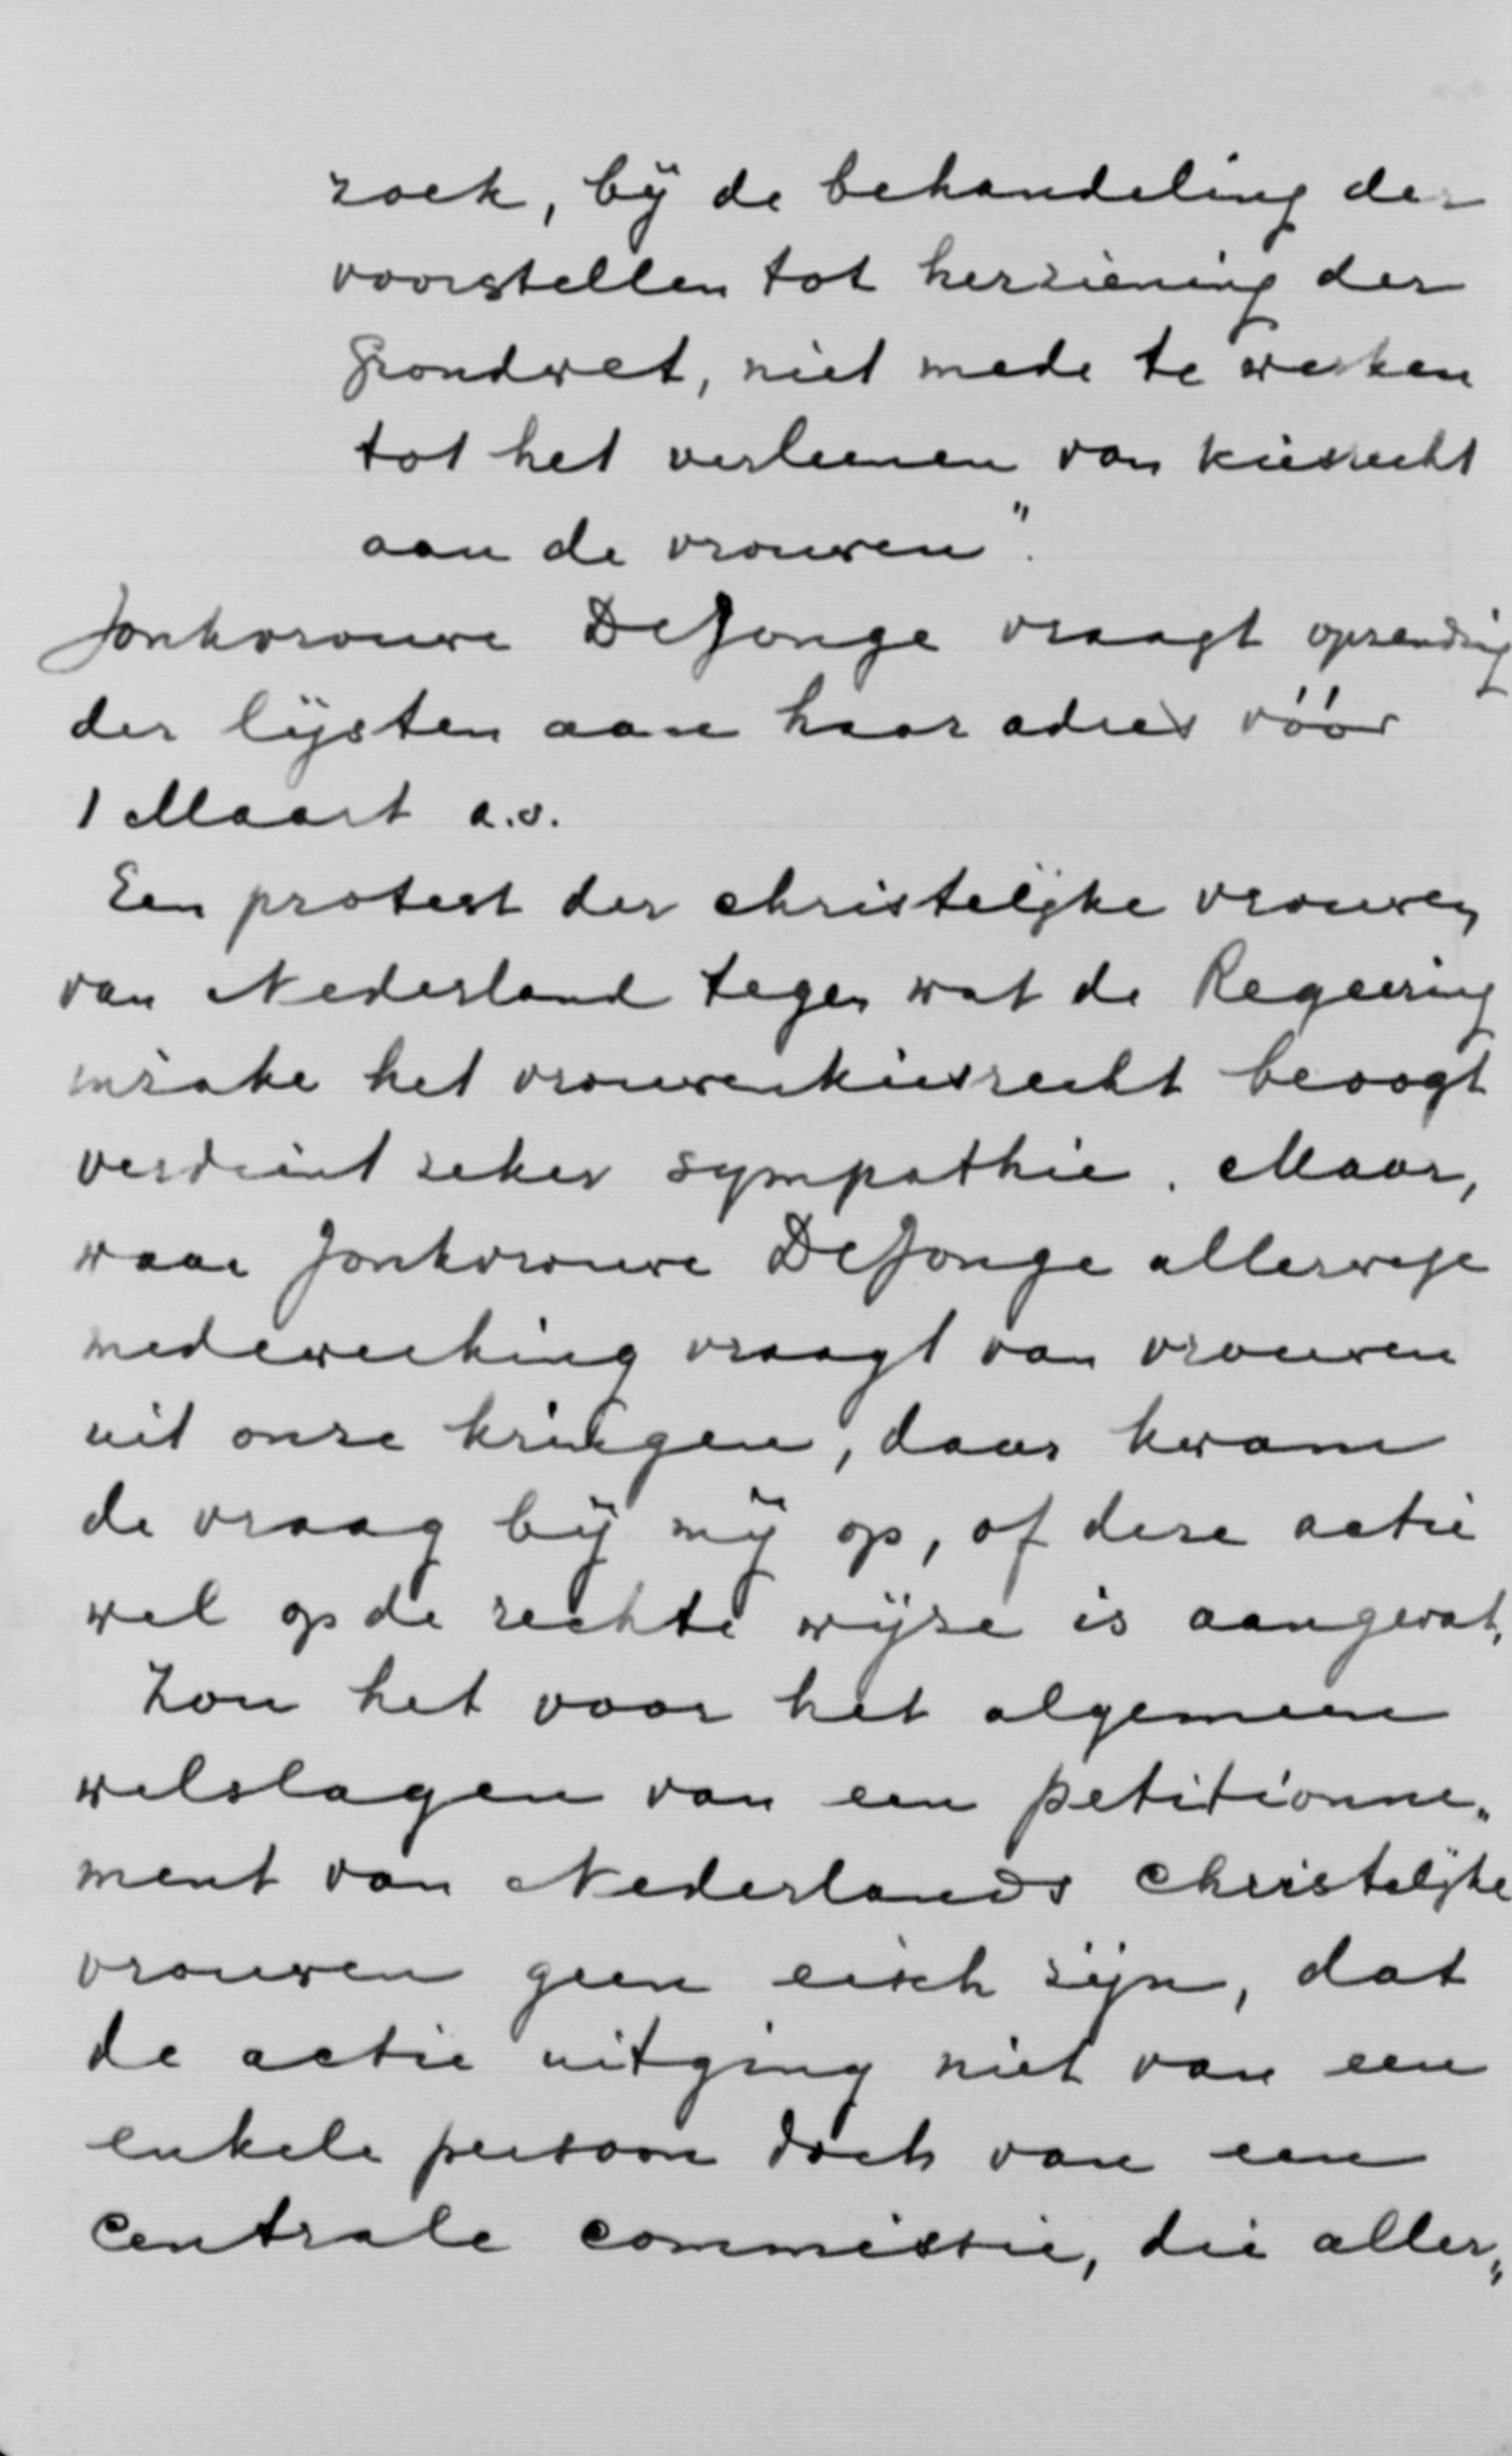 zoek, bij de behandeling der
voorstellen tot herziening der
Grondwet, niet mede te werken
tot het verleenen van kiesrecht
aan de vrouwen".
Jonkvrouwe De Jonge vraagt opzending
der lijsten aan haar adres vóór
1 Maart a.s.
Een protest der christelijke vrouwen
van Nederland tegen wat de Regeering
inzake het vrouwenkiesrecht beoogt
verdient zeker sympathie. Maar,
waar Jonkvrouwe De Jonge allerwege
medewerking vraagt van vrouwen
uit onze kringen, daar kwam
de vraag bij mij op, of deze actie
wel op de rechte wijze is aangevat.
Zou het voor het algemeen
welslagen van een petitionne„
ment van Nederlands christelijke
vrouwen geen eisch zijn, dat
de actie uitging niet van een
enkele persoon doch van een
centrale commissie, die aller„